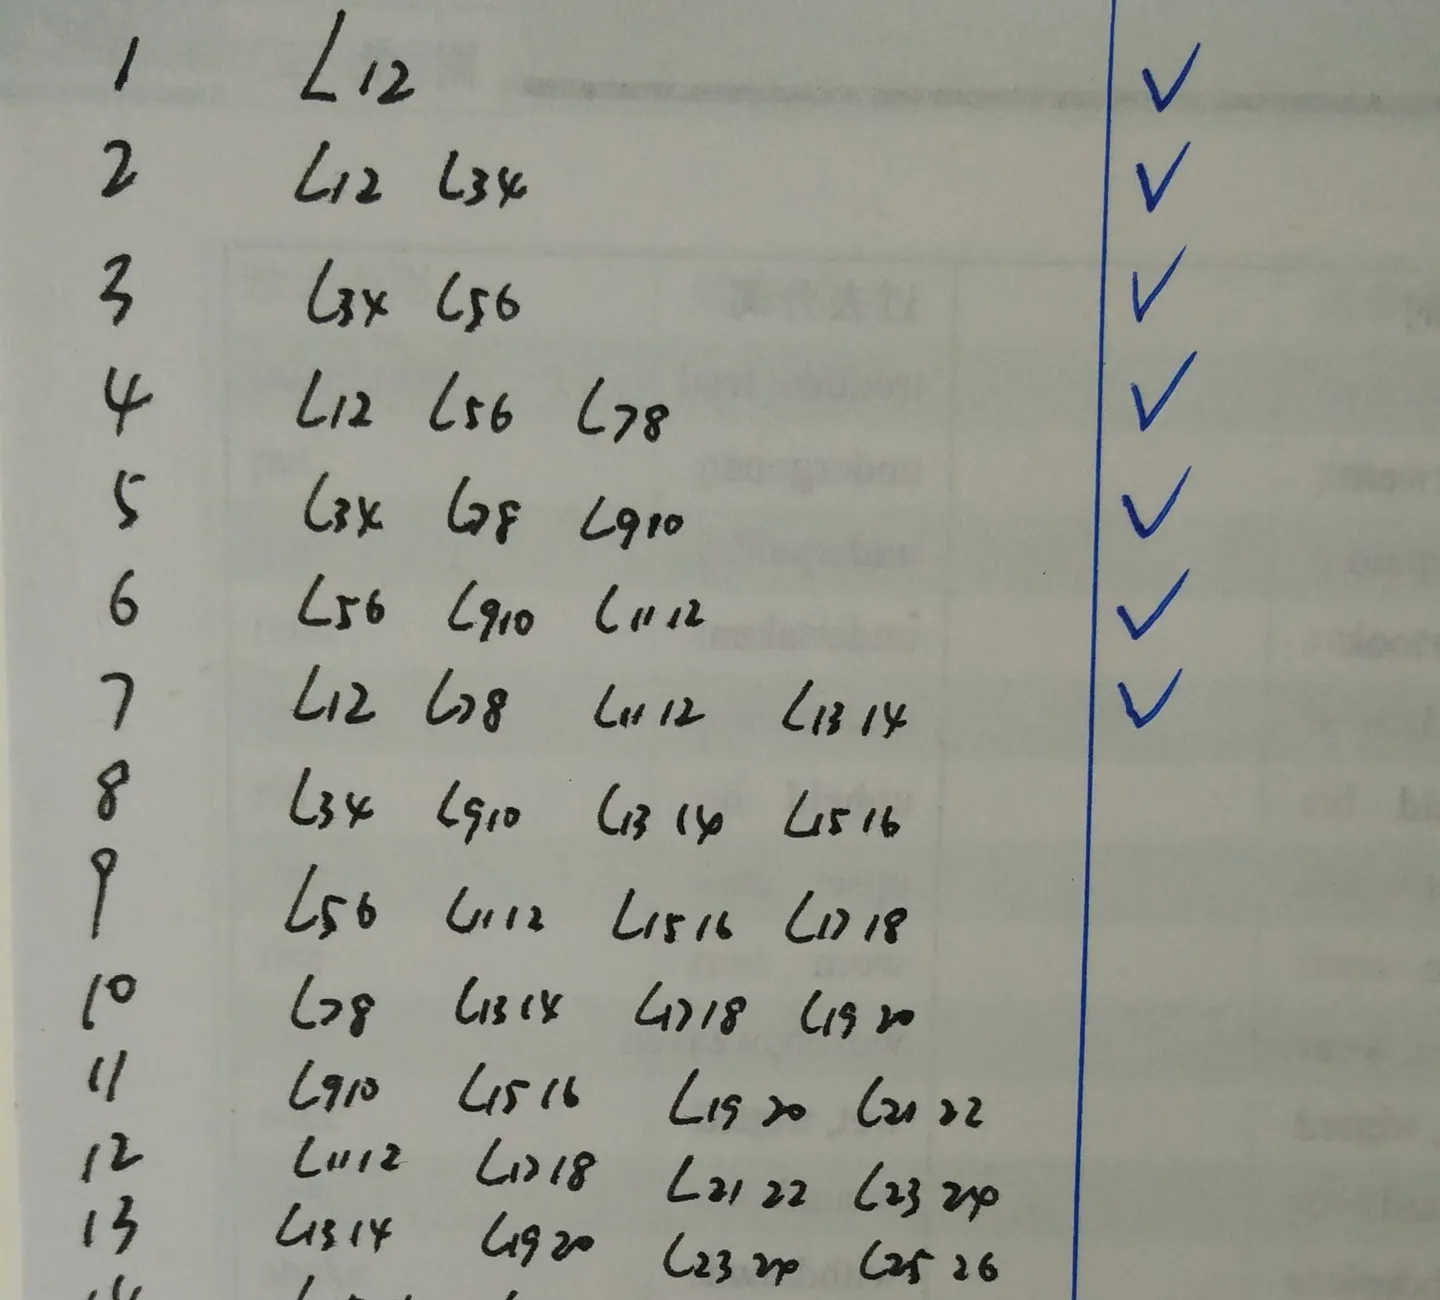 1 L12 ✓
2 L12 L34 ✓
3 L34 L56 ✓
4 L12 L56 L78 ✓
5 L34 L78 L910 ✓
6 L56 L910 L1112 ✓
7 L12 L78 L11 12 L13 14 ✓
8 L34 L910 L13 14 L15 16
9 L56 L1112 L15 16 L17 18
10 L78 L13 14 L17 18 L19 20
11 L910 L15 16 L19 20 L21 22
12 L1112 L17 18 L21 22 L23 24
13 L13 14 L19 20 L23 24 L25 26
14